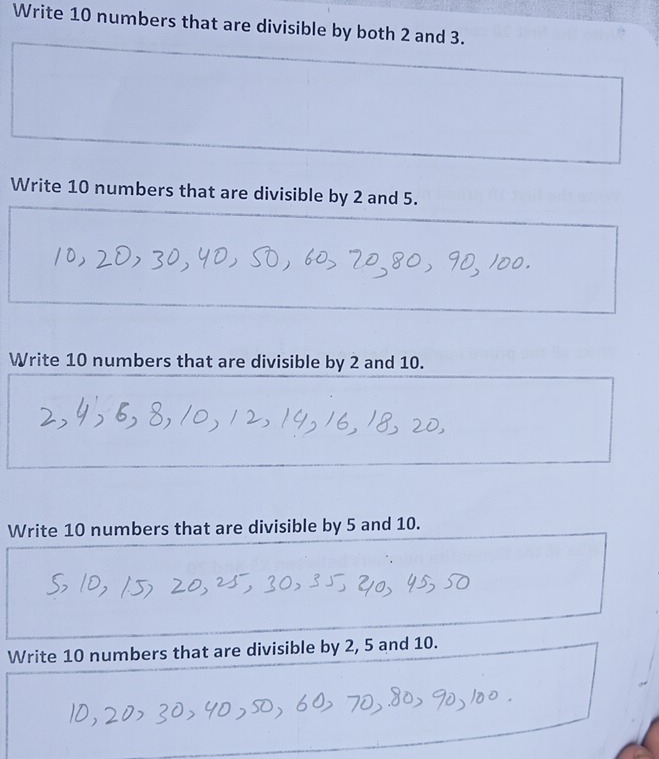 Write 10 numbers that are divisible by both 2 and 3.
Write 10 numbers that are divisible by 2 and 5.
10, 20, 30, 40, 50, 60, 70, 80, 90, 100.
Write 10 numbers that are divisible by 2 and 10.
2, 4, 6, 8, 10, 12, 14, 16, 18, 20,
Write 10 numbers that are divisible by 5 and 10.
5, 10, 15, 20, 25, 30, 35, 40, 45, 50
Write 10 numbers that are divisible by 2, 5 and 10.
10, 20, 30, 40, 50, 60, 70, 80, 90, 100.